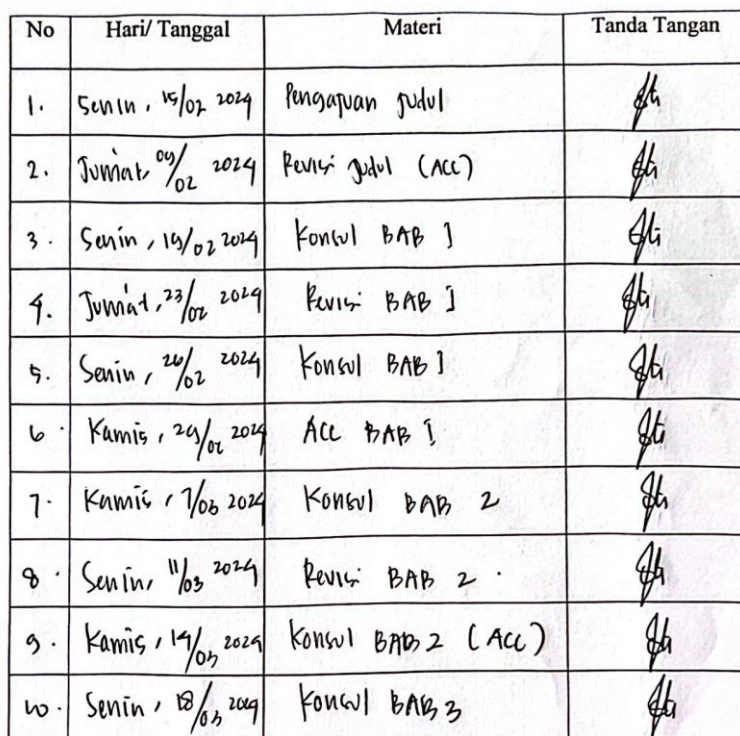 No Hari/ Tanggal Materi Tanda Tangan
1. Senin, 15/02 2024 Pengajuan judul
2. Jumat, 09/02 2024 Revisi judul (ACC)
3. Senin, 19/02 2024 Konsul BAB I
4. Jumat, 23/02 2024 Revisi BAB I
5. Senin, 26/02 2024 Konsul BAB I
6. Kamis, 29/02 2024 ACC BAB I
7. Kamis, 7/03 2024 Konsul BAB 2
8. Senin, 11/03 2024 Revisi BAB 2
9. Kamis, 14/03 2024 Konsul BAB 2 (ACC)
10. Senin, 18/03 2024 Konsul BAB 3